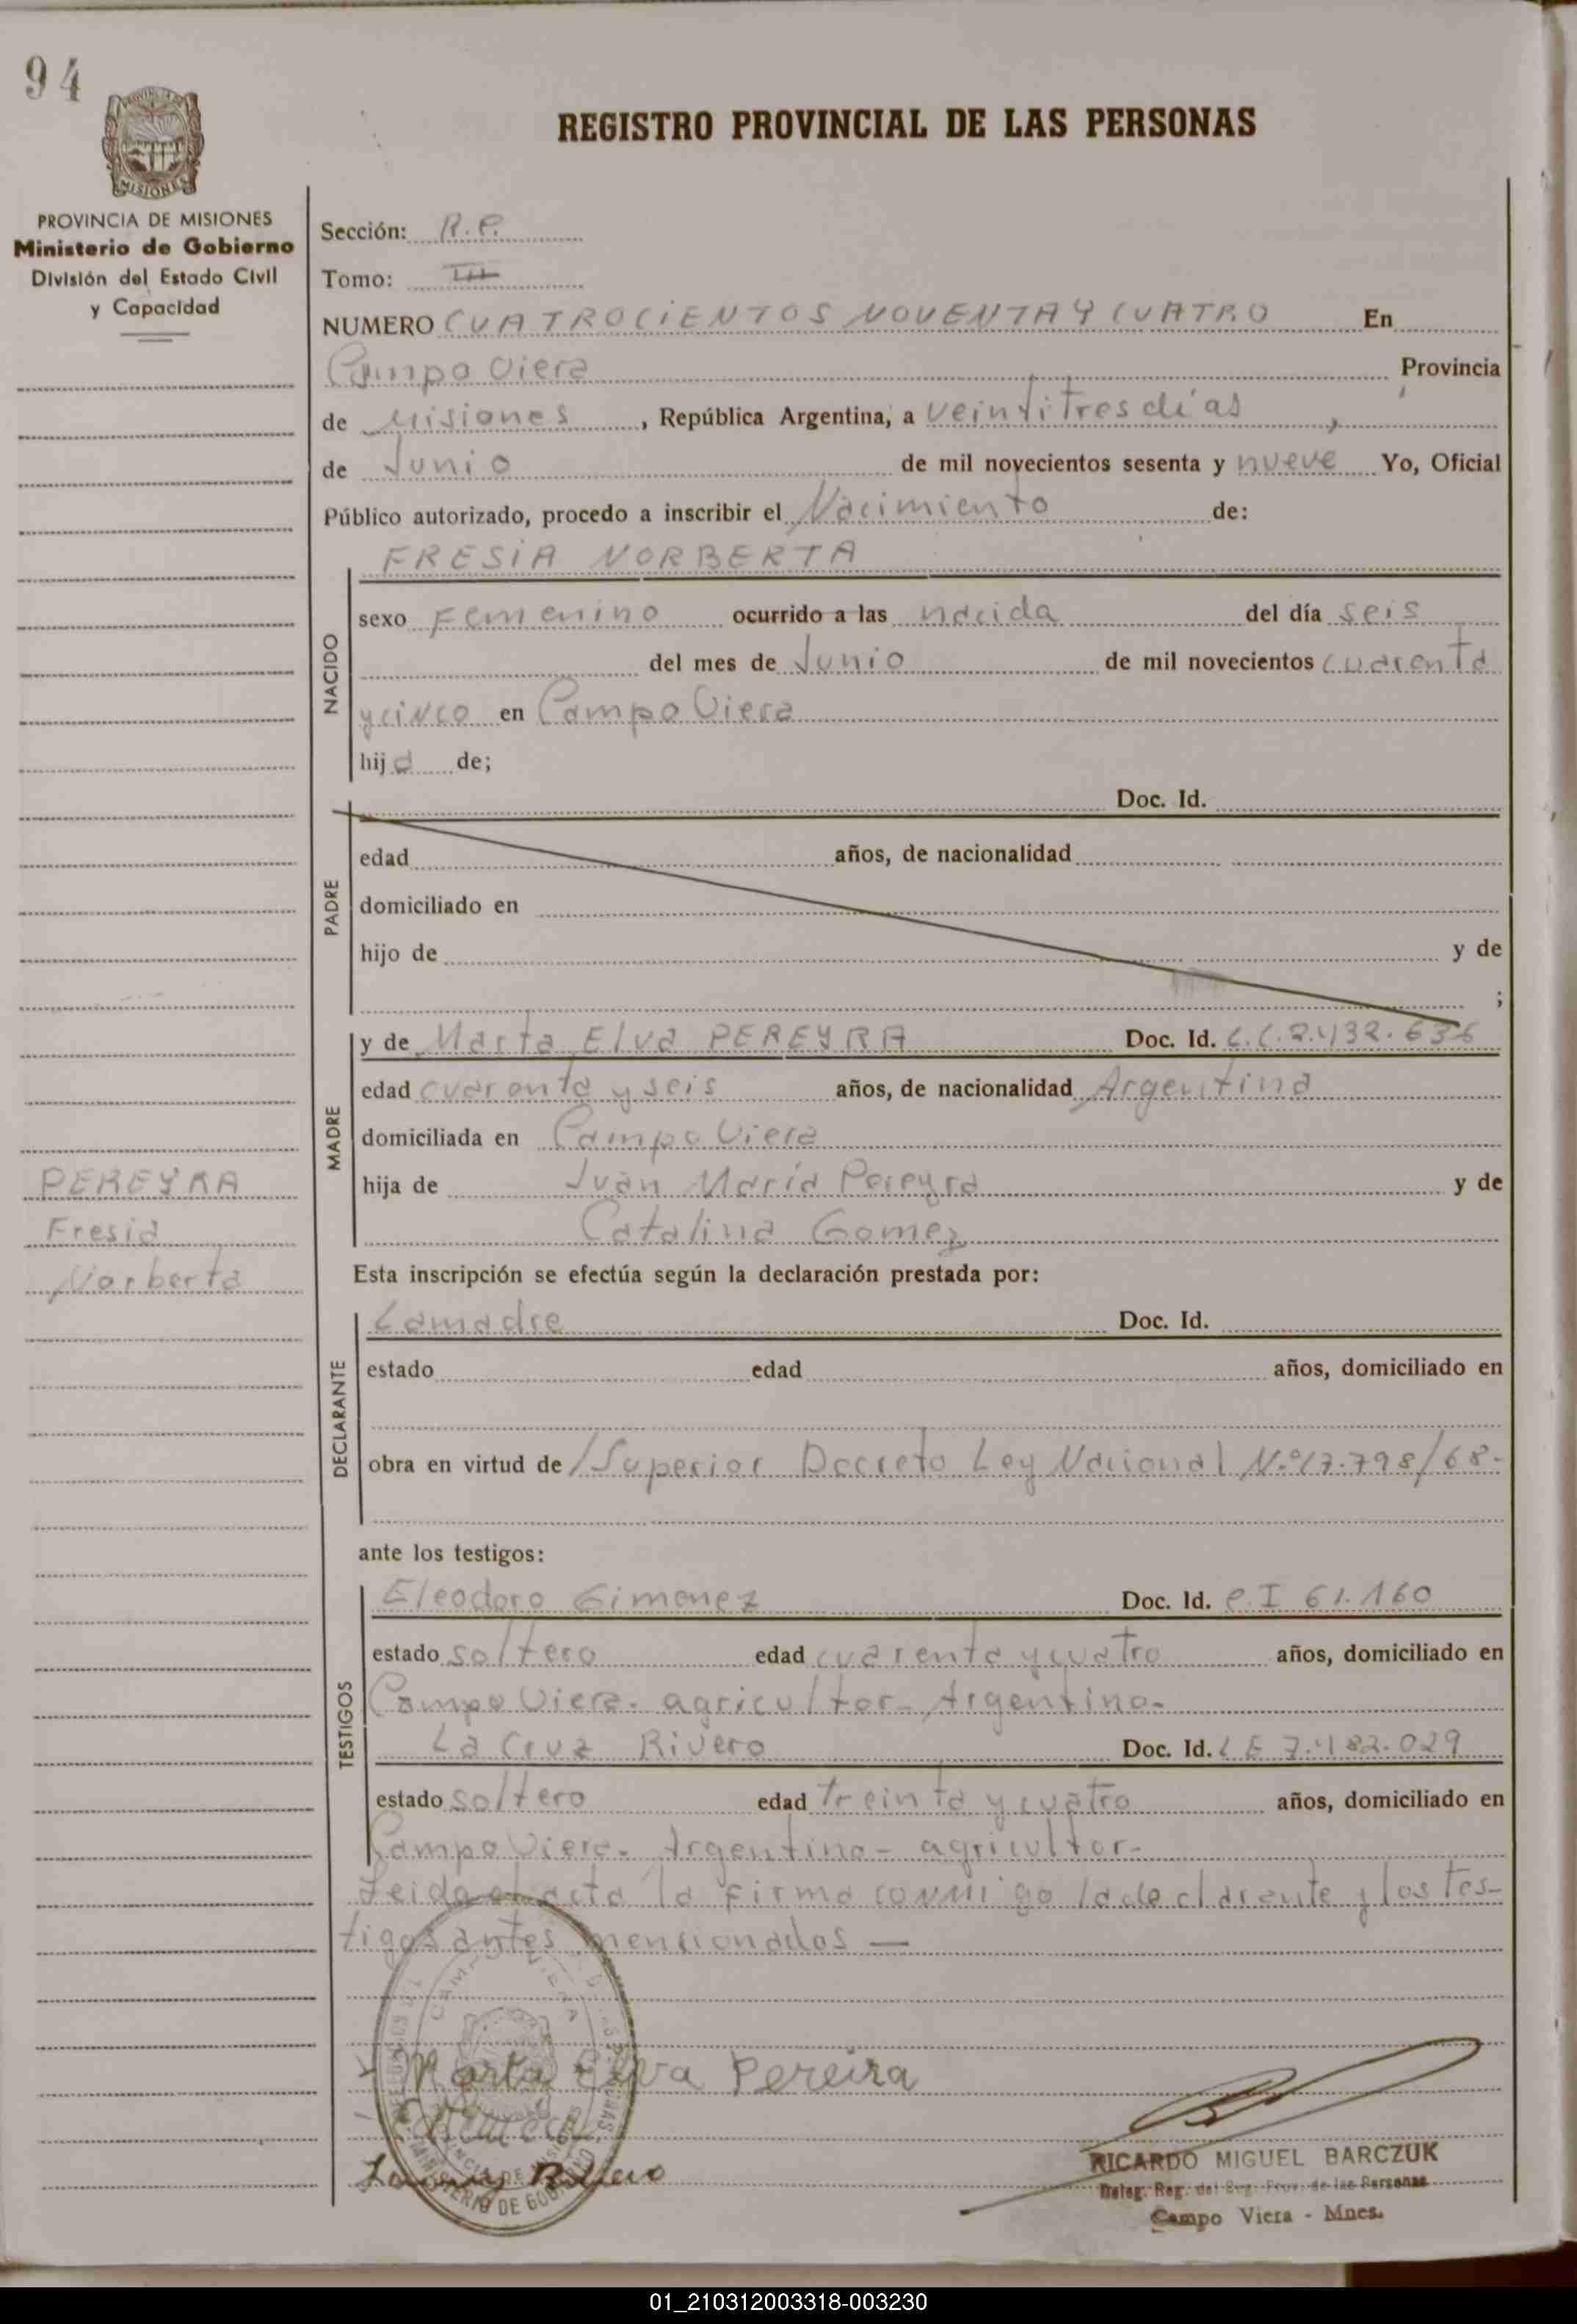 94
REGISTRO PROVINCIAL DE LAS PERSONAS
MISIONES
PROVINCIA DE MISIONES
Ministerio de Gobierno
División del Estado Civil
y Capacidad
Sección: R.P.
Tomo: III
NUMERO CUATROCIENTOS NOVENTA Y CUATRO En
Campo Viera Provincia
de Misiones, República Argentina, a veintitres dias,
de Junio de mil novecientos sesenta y nueve Yo, Oficial
Público autorizado, procedo a inscribir el Nacimiento de:
FRESIA NORBERTA
NACIDO
sexo Femenino ocurrido a las nacida del día seis
del mes de Junio de mil novecientos cuarenta
y cinco en Campo Viera
hija de;
PADRE
Doc. Id.
edad años, de nacionalidad
domiciliado en
hijo de y de
;
MADRE
y de Marta Elva PEREYRA Doc. Id. L.C. 2.432.636
edad cuarenta y seis años, de nacionalidad Argentina
domiciliada en Campo Viera
hija de Juan María Pereyra y de
Catalina Gomez
PEREYRA
Fresia
Norberta
Esta inscripción se efectúa según la declaración prestada por:
DECLARANTE
La madre Doc. Id.
estado edad años, domiciliado en
obra en virtud de /Superior Decreto Ley Nacional N.º 17.798/68-
ante los testigos:
TESTIGOS
Eleodoro Gimenez Doc. Id. C.I 61.160
estado soltero edad cuarenta y cuatro años, domiciliado en
Campo Viera- agricultor- Argentino-
La Cruz Rivero Doc. Id. L E 7.482.029
estado soltero edad treinta y cuatro años, domiciliado en
Campo Viera- Argentino- agricultor-
Leida el acta la firma conmigo la declarante y los tes-
tigos antes mencionados —
Marta Elva Pereira
RICARDO MIGUEL BARCZUK
Deleg. Reg. del Reg. Prov. de las Personas
Campo Viera - Mnes.
MINISTERIO DE GOBIERNO
01_210312003318-003230